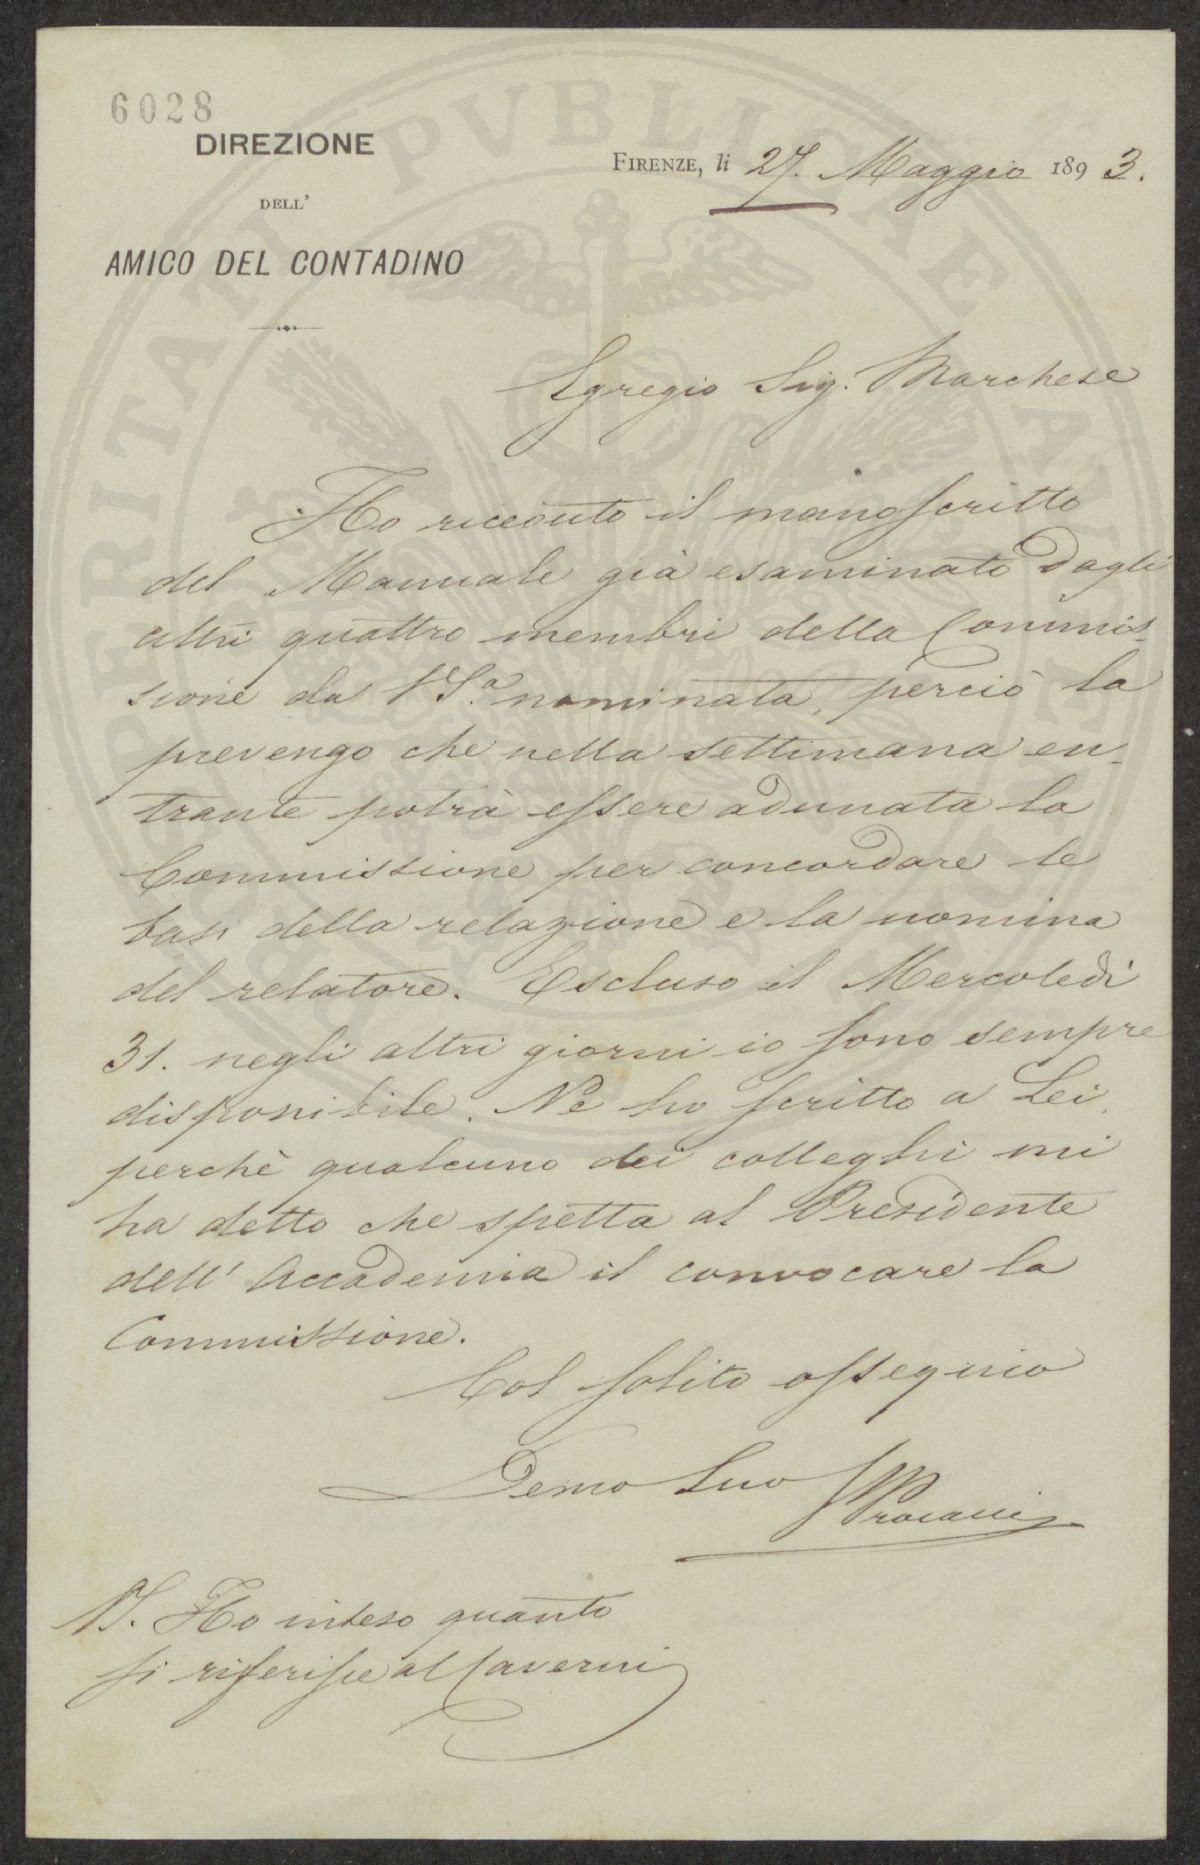 6028
DIREZIONE
DELL'
AMICO DEL CONTADINO
FIRENZE, li 27. Maggio 1893.
Egregio Sig. Marchese
Ho ricevuto il manoscritto
del Manuale già esaminato dagli
altri quattro membri della Commis-
sione da V.S.ª nominata, perciò la
prevengo che nella settimana en-
trante potrà essere adunata la
Commissione per concordare le
basi della relazione e la nomina
del relatore. Escluso il Mercoledì
31. negli altri giorni io sono sempre
disponibile. Ne ho scritto a Lei,
perchè qualcuno dei colleghi mi
ha detto che spetta al Presidente
dell' Accademia il convocare la
Commissione.
Col solito ossequio
Demo Suo
PS. Ho inteso quanto
si riferisce al Caverni
PROSPERITATI PVBLICAE AVGENDAE